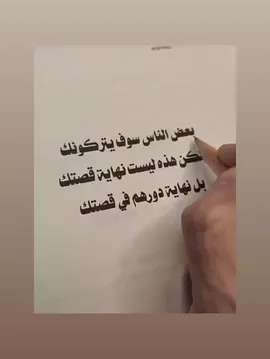 بعض الناس سوف يتركونك
لكن هذه ليست نهاية قصتك
بل نهاية دورهم في قصتك